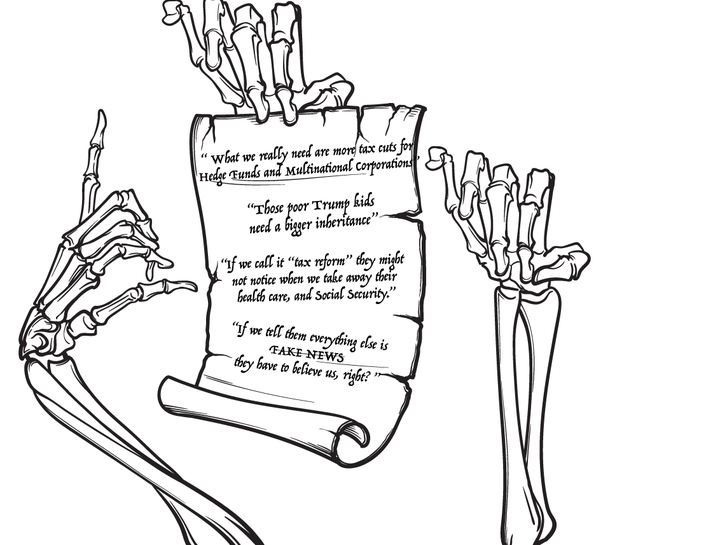 “ What we really need are more tax cuts for
Hedge Funds and Multinational Corporations”
“Those poor Trump kids
need a bigger inheritance”
“If we call it “tax reform” they might
not notice when we take away their
health care, and Social Security.”
“If we tell them everything else is
FAKE NEWS
they have to believe us, right? ”